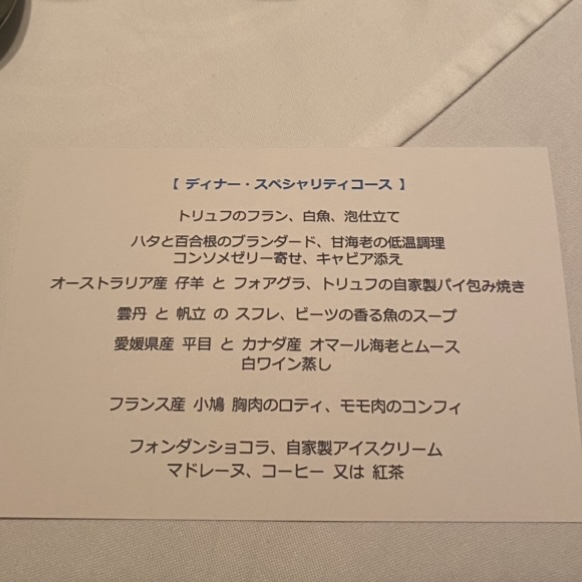 【 ディナー・スペシャリティコース 】
トリュフのフラン、白魚、泡仕立て
ハタと百合根のブランダード、甘海老の低温調理
コンソメゼリー寄せ、キャビア添え
オーストラリア産 仔羊 と フォアグラ、トリュフの自家製パイ包み焼き
雲丹 と 帆立 の スフレ、ビーツの香る魚のスープ
愛媛県産 平目 と カナダ産 オマール海老とムース
白ワイン蒸し
フランス産 小鳩 胸肉のロティ、モモ肉のコンフィ
フォンダンショコラ、自家製アイスクリーム
マドレーヌ、コーヒー 又は 紅茶